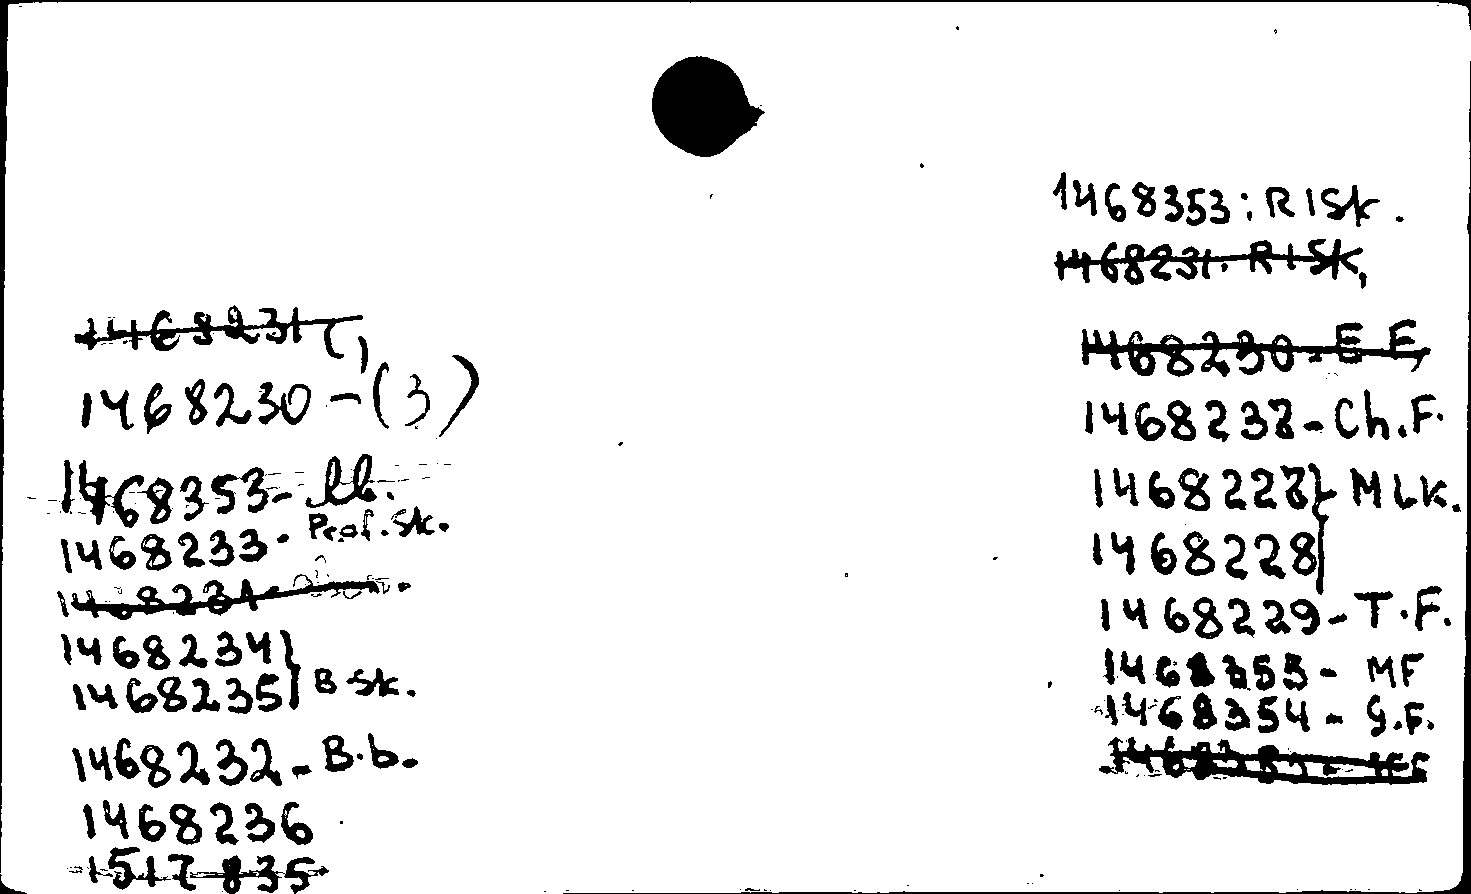 1468231
1468230-(3)
1468353-lb.
1468233. Prof. Sk.
1468231-
1468234}
1468235} B Sk.
1468232-B.b.
1468236
1517835
1468353: RISk.
1468231. RISK,
1468230-E F,
1468232-Ch.F.
1468227} MLK.
1468228
1468229-T.F.
1468353- MF
1468354- G.F.